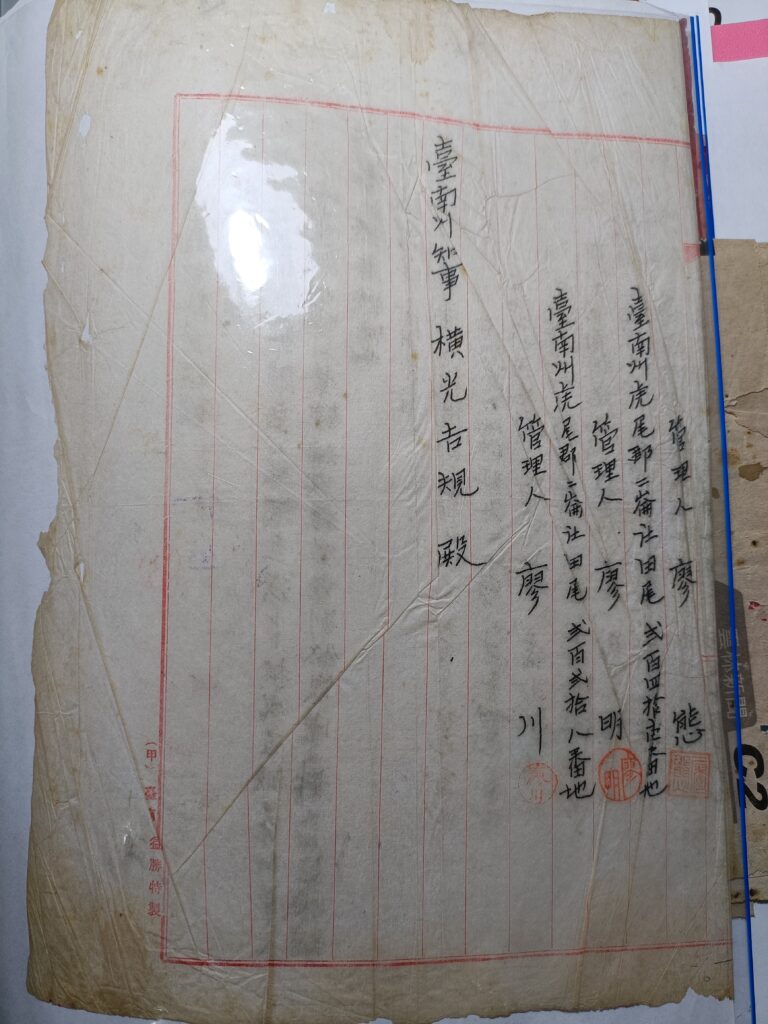 管理人 廖 態
臺南州虎尾郡二崙庄田尾 弍百四拾 番地
管理人 廖 明
臺南州虎尾郡二崙庄田尾 弍百弍拾八番地
管理人 廖 川
臺南州知事 橫光吉規 殿
(甲) 臺 益勝特製
廖明
G2